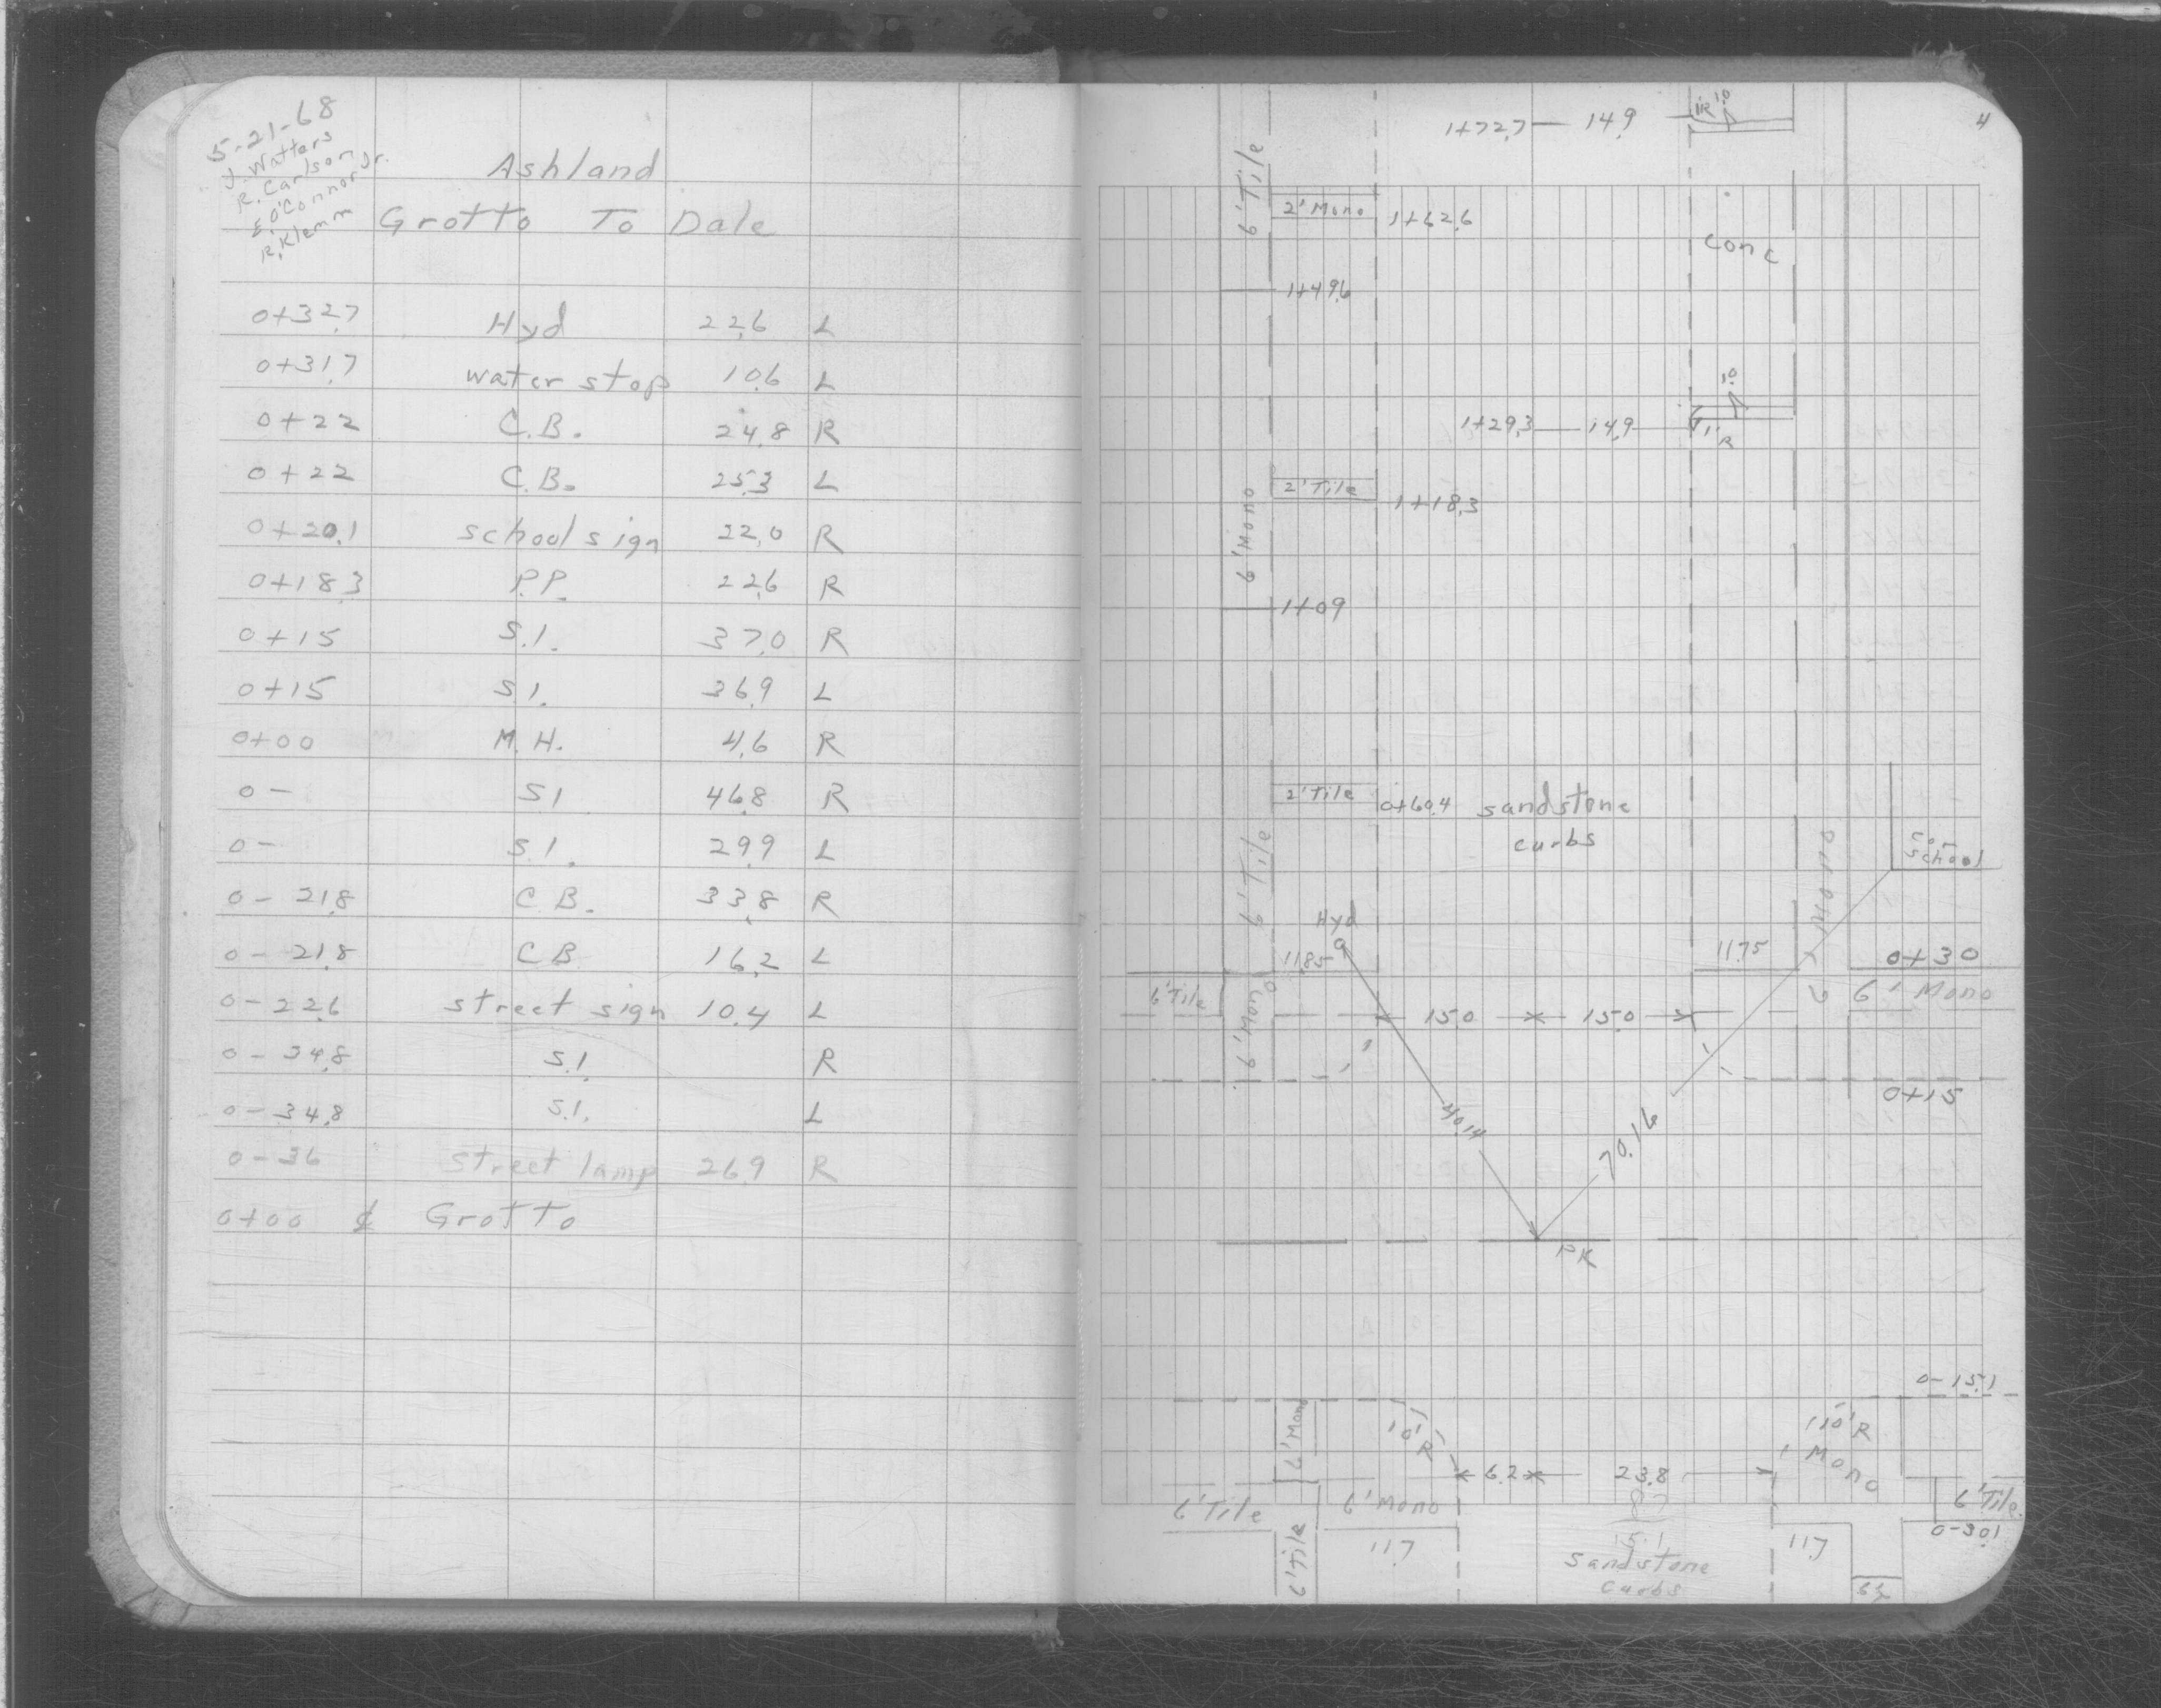 5-21-68
J. Watters
R. Carlson
E. O'Connor Jr.
R. Klemm
Ashland
Grotto To Dale
0+32.7 Hyd 22.6 L
0+31.7 water stop 10.6 L
0+22 C.B. 24.8 R
0+22 C.B. 25.3 L
0+20.1 school sign 22.0 R
0+18.3 P.P. 22.6 R
0+15 S.I. 37.0 R
0+15 S.I. 36.9 L
0+00 M.H. 4.6 R
0- S.I 46.8 R
0- S.I. 29.9 L
0-21.8 C.B. 33.8 R
0-21.8 C.B 16.2 L
0-22.6 street sign 10.4 L
0-34.8 S.I. R
0-34.8 S.I. L
0-36 street lamp 26.9 R
0+00 ℄ Grotto
4
1+72.7 14.9 1'R 1.0
6' Tile
2' Mono 1+62.6
conc
1+49.6
1.0
1+29.3 14.9 1' R
2' Tile 1+18.3
6' Mono
1+09
2' Tile 0+60.4 sandstone
curbs
Cor
School
6' Tile
Hyd
11.85
11.75
0+30
6' Tile
6' Mono
15.0 15.0
6' Mono
0+15
40.14
70.16
PK
0-15.1
6' Mono
10' R
10' R
Mono
6.2 23.8
6' Tile 6' Mono
6' Tile
0-30.1
6' Tile
11.7
15.1
11.7
sandstone
curbs